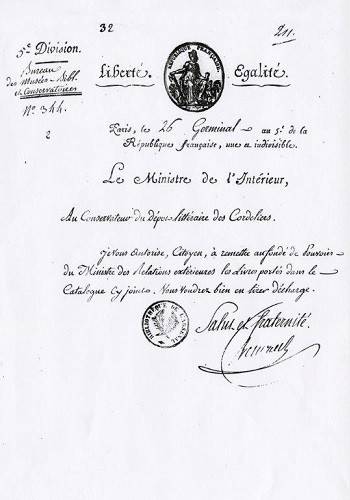 32
211.
5e Division.
Bureau
des Musées - Bibl.
et Conservatoires
N.o 344.
2
RÉPUBLIQUE FRANÇAISE.
Liberté. Egalité.
Paris, le 26 Germinal au 5.e de la
République française, une et indivisible.
Le Ministre de l'Intérieur,
Au Conservateur du Dépot littéraire des Cordeliers.
Je vous Autorise, Citoyen, à remettre au fondé de Pouvoir
du Ministre des Relations extérieures les Livres portés dans le
Catalogue Cy joint. Vous voudrez bien en tirer décharge.
Salut et fraternité.
BIBLIOTHÈQUE DE L'ARSENAL